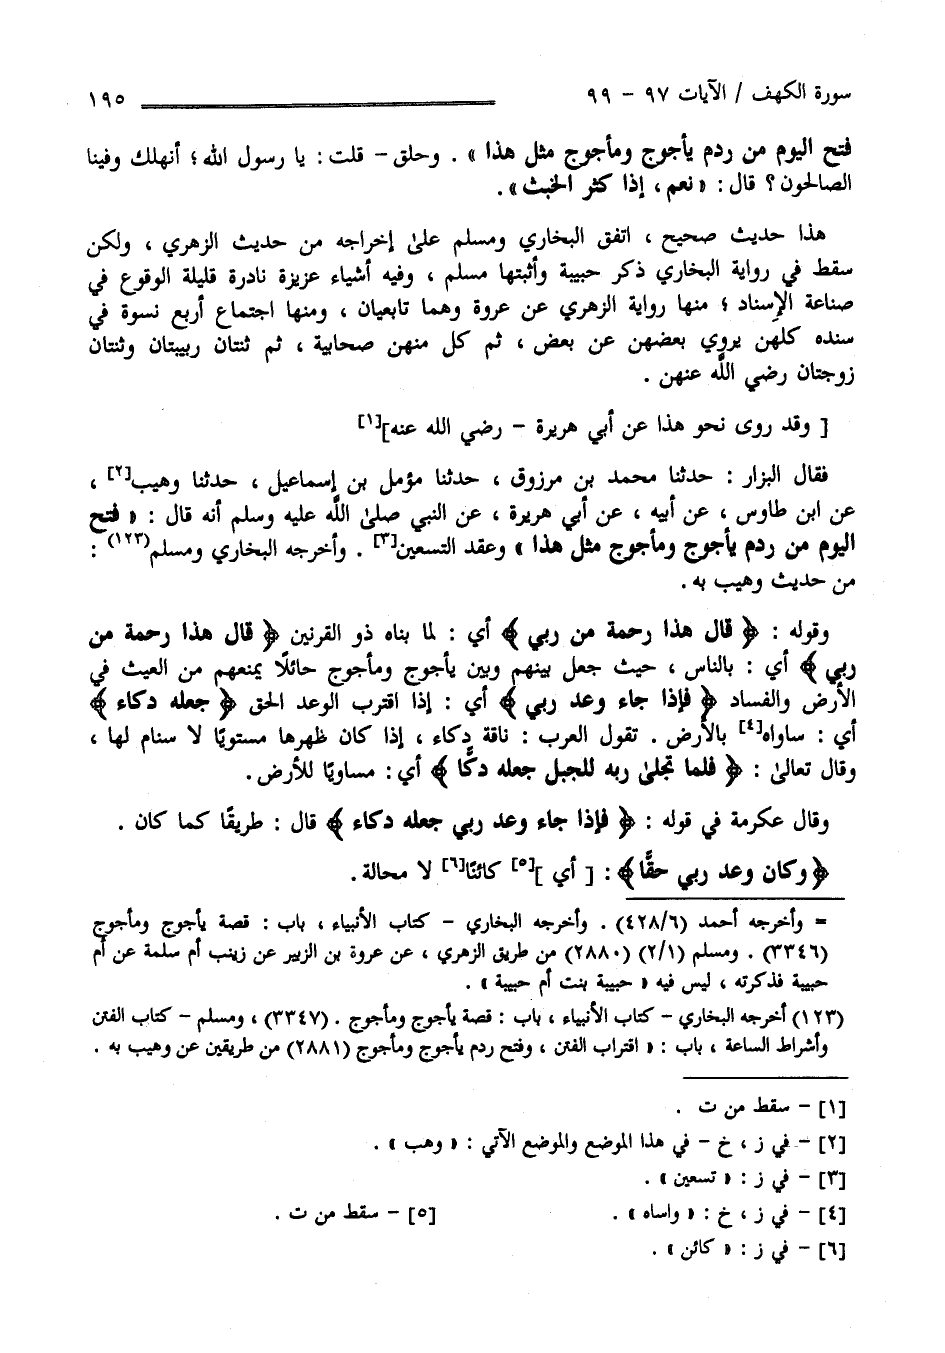 سورة الكهف / الآيات ٩٧ - ٩٩ ١٩٥
فتح اليوم من ردم يأجوج ومأجوج مثل هذا » . وحلق - قلت : يا رسول الله ؛ أنهلك وفينا
الصالحون ؟ قال : « نعم ، إذا كثر الخبث » .
هذا حديث صحيح ، اتفق البخاري ومسلم علىٰ إخراجه من حديث الزهري ، ولكن
سقط في رواية البخاري ذكر حبيبة وأثبتها مسلم ، وفيه أشياء عزيزة نادرة قليلة الوقوع في
صناعة الإسناد ؛ منها رواية الزهري عن عروة وهما تابعيان ، ومنها اجتماع أربع نسوة في
سنده كلهن يروي بعضهن عن بعض ، ثم كل منهن صحابية ، ثم ثنتان ربيبتان وثنتان
زوجتان رضي اللَّه عنهن .
[ وقد روى نحو هذا عن أبي هريرة - رضي الله عنه][١]
فقال البزار : حدثنا محمد بن مرزوق ، حدثنا مؤمل بن إسماعيل ، حدثنا وهيب[٢] ،
عن ابن طاوس ، عن أبيه ، عن أبي هريرة ، عن النبي صلىٰ اللَّه عليه وسلم أنه قال : « فتح
اليوم من ردم يأجوج ومأجوج مثل هذا » وعقد التسعين[٣] . وأخرجه البخاري ومسلم(١٢٣) :
من حديث وهيب به .
وقوله : ﴿ قال هذا رحمة من ربي ﴾ أي : لما بناه ذو القرنين ﴿ قال هذا رحمة من
ربي ﴾ أي : بالناس ، حيث جعل بينهم وبين يأجوج ومأجوج حائلًا يمنعهم من العيث في
الأرض والفساد ﴿ فإذا جاء وعد ربي ﴾ أي : إذا اقترب الوعد الحق ﴿ جعله دكاء ﴾
أي : ساواه[٤] بالأرض . تقول العرب : ناقة دكاء ، إذا كان ظهرها مستويًا لا سنام لها ،
وقال تعالىٰ : ﴿ فلما تجلىٰ ربه للجبل جعله دكًّا ﴾ أي : مساويًا للأرض .
وقال عكرمة في قوله : ﴿ فإذا جاء وعد ربي جعله دكاء ﴾ قال : طريقًا كما كان .
﴿وكان وعد ربي حقًّا﴾ : [ أي ][٥] كائنًا[٦] لا محالة .
= وأخرجه أحمد (٤٢٨/٦) . وأخرجه البخاري - كتاب الأنبياء ، باب : قصة يأجوج ومأجوج
(٣٣٤٦) . ومسلم (٢/١) (٢٨٨٠) من طريق الزهري ، عن عروة بن الزبير عن زينب أم سلمة عن أم
حبيبة فذكرته ، ليس فيه « حبيبة بنت أم حبيبة » .
(١٢٣) أخرجه البخاري - كتاب الأنبياء ، باب : قصة يأجوج ومأجوج . (٣٣٤٧) ، ومسلم - كتاب الفتن
وأشراط الساعة ، باب : « اقتراب الفتن ، وفتح ردم يأجوج ومأجوج (٢٨٨١) من طريقين عن وهيب به .
[١] - سقط من ت .
[٢] - في ز ، خ - في هذا الموضع والموضع الآتي : « وهب » .
[٣] - في ز : « تسعين » .
[٤] - في ز ، خ : « واساه » . [٥] - سقط من ت .
[٦] - في ز : « كائن » .